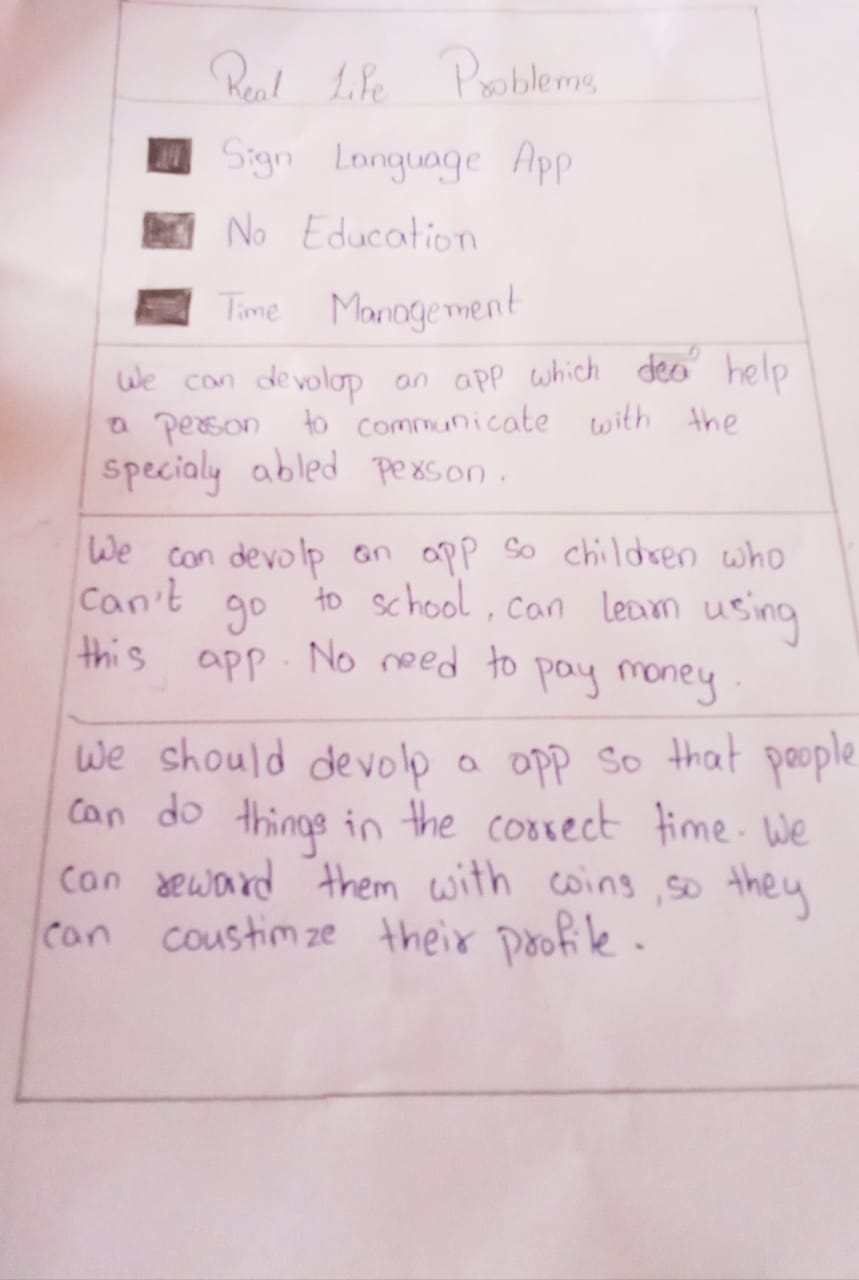 Real Life Problems
Sign Language App
No Education
Time Management
We can devolop an app which help
a person to communicate with the
specialy abled person.
We can devolp an app so children who
can't go to school, can learn using
this app. No need to pay money.
We should devolp a app so that people
can do things in the correct time. We
can reward them with coins, so they
can coustimze their profile.